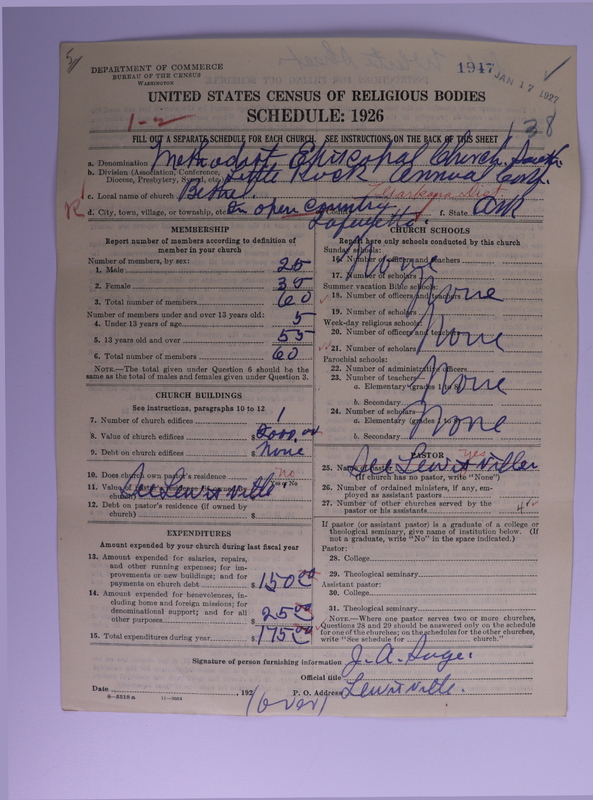 DEPARTMENT OF COMMERCE
BUREAU OF THE CENSUS
WASHINGTON
1947
JAN 17 1927
UNITED STATES CENSUS OF RELIGIOUS BODIES
SCHEDULE: 1926
1-2
138
FILL OUT A SEPARATE SCHEDULE FOR EACH CHURCH. SEE INSTRUCTIONS ON THE BACK OF THIS SHEET
a. Denomination Methodist Episcopal Church, South.
b. Division (Association, Conference, Diocese, Presbytery, Synod, etc.) Little Rock Annual Conf.
c. Local name of church Bethel. Texarkana Dist
d. City, town, village, or township, etc. In open country
Lafayette. f. State Ark
MEMBERSHIP
Report number of members according to definition of
member in your church
Number of members, by sex:
1. Male 25
2. Female 35
3. Total number of members 60
Number of members under and over 13 years old:
4. Under 13 years of age 5
5. 13 years old and over 55
6. Total number of members 60
NOTE.—The total given under Question 6 should be the
same as the total of males and females given under Question 3.
CHURCH BUILDINGS
See instructions, paragraphs 10 to 12
7. Number of church edifices 1
8. Value of church edifices $
9. Debt on church edifices $ None
10. Does church own pastor's residence no
Yes or No
11. Value of pastor's residence (if owned by
church) See Lewisville
12. Debt on pastor's residence (if owned by
church) $
EXPENDITURES
Amount expended by your church during last fiscal year
13. Amount expended for salaries, repairs,
and other running expenses; for im-
provements or new buildings; and for
payments on church debt $ 150.00
14. Amount expended for benevolences, in-
cluding home and foreign missions; for
denominational support; and for all
other purposes $ 25.00
15. Total expenditures during year $ 175.00
CHURCH SCHOOLS
Report here only schools conducted by this church
Sunday schools:
16. Number of officers and teachers
17. Number of scholars None
Summer vacation Bible schools:
18. Number of officers and teachers
19. Number of scholars None
Week-day religious schools:
20. Number of officers and teachers
21. Number of scholars None
Parochial schools:
22. Number of administrative officers
23. Number of teachers—
a. Elementary (grades 1 to 8) None
b. Secondary
24. Number of scholars—
a. Elementary (grades 1 to 8) None
b. Secondary
PASTOR
yes
25. Name of pastor See Lewisville
(If church has no pastor, write "None")
26. Number of ordained ministers, if any, em-
ployed as assistant pastors
27. Number of other churches served by the
pastor or his assistants 4
If pastor (or assistant pastor) is a graduate of a college or
theological seminary, give name of institution below. (If
not a graduate, write "No" in the space indicated.)
Pastor:
28. College
29. Theological seminary
Assistant pastor:
30. College
31. Theological seminary
NOTE.—Where one pastor serves two or more churches,
Questions 28 and 29 should be answered only on the schedule
for one of the churches; on the schedules for the other churches,
write "See schedule for church."
Signature of person furnishing information J. A. Sage.
Official title
Date , 192 P. O. Address Lewisville.
(over)